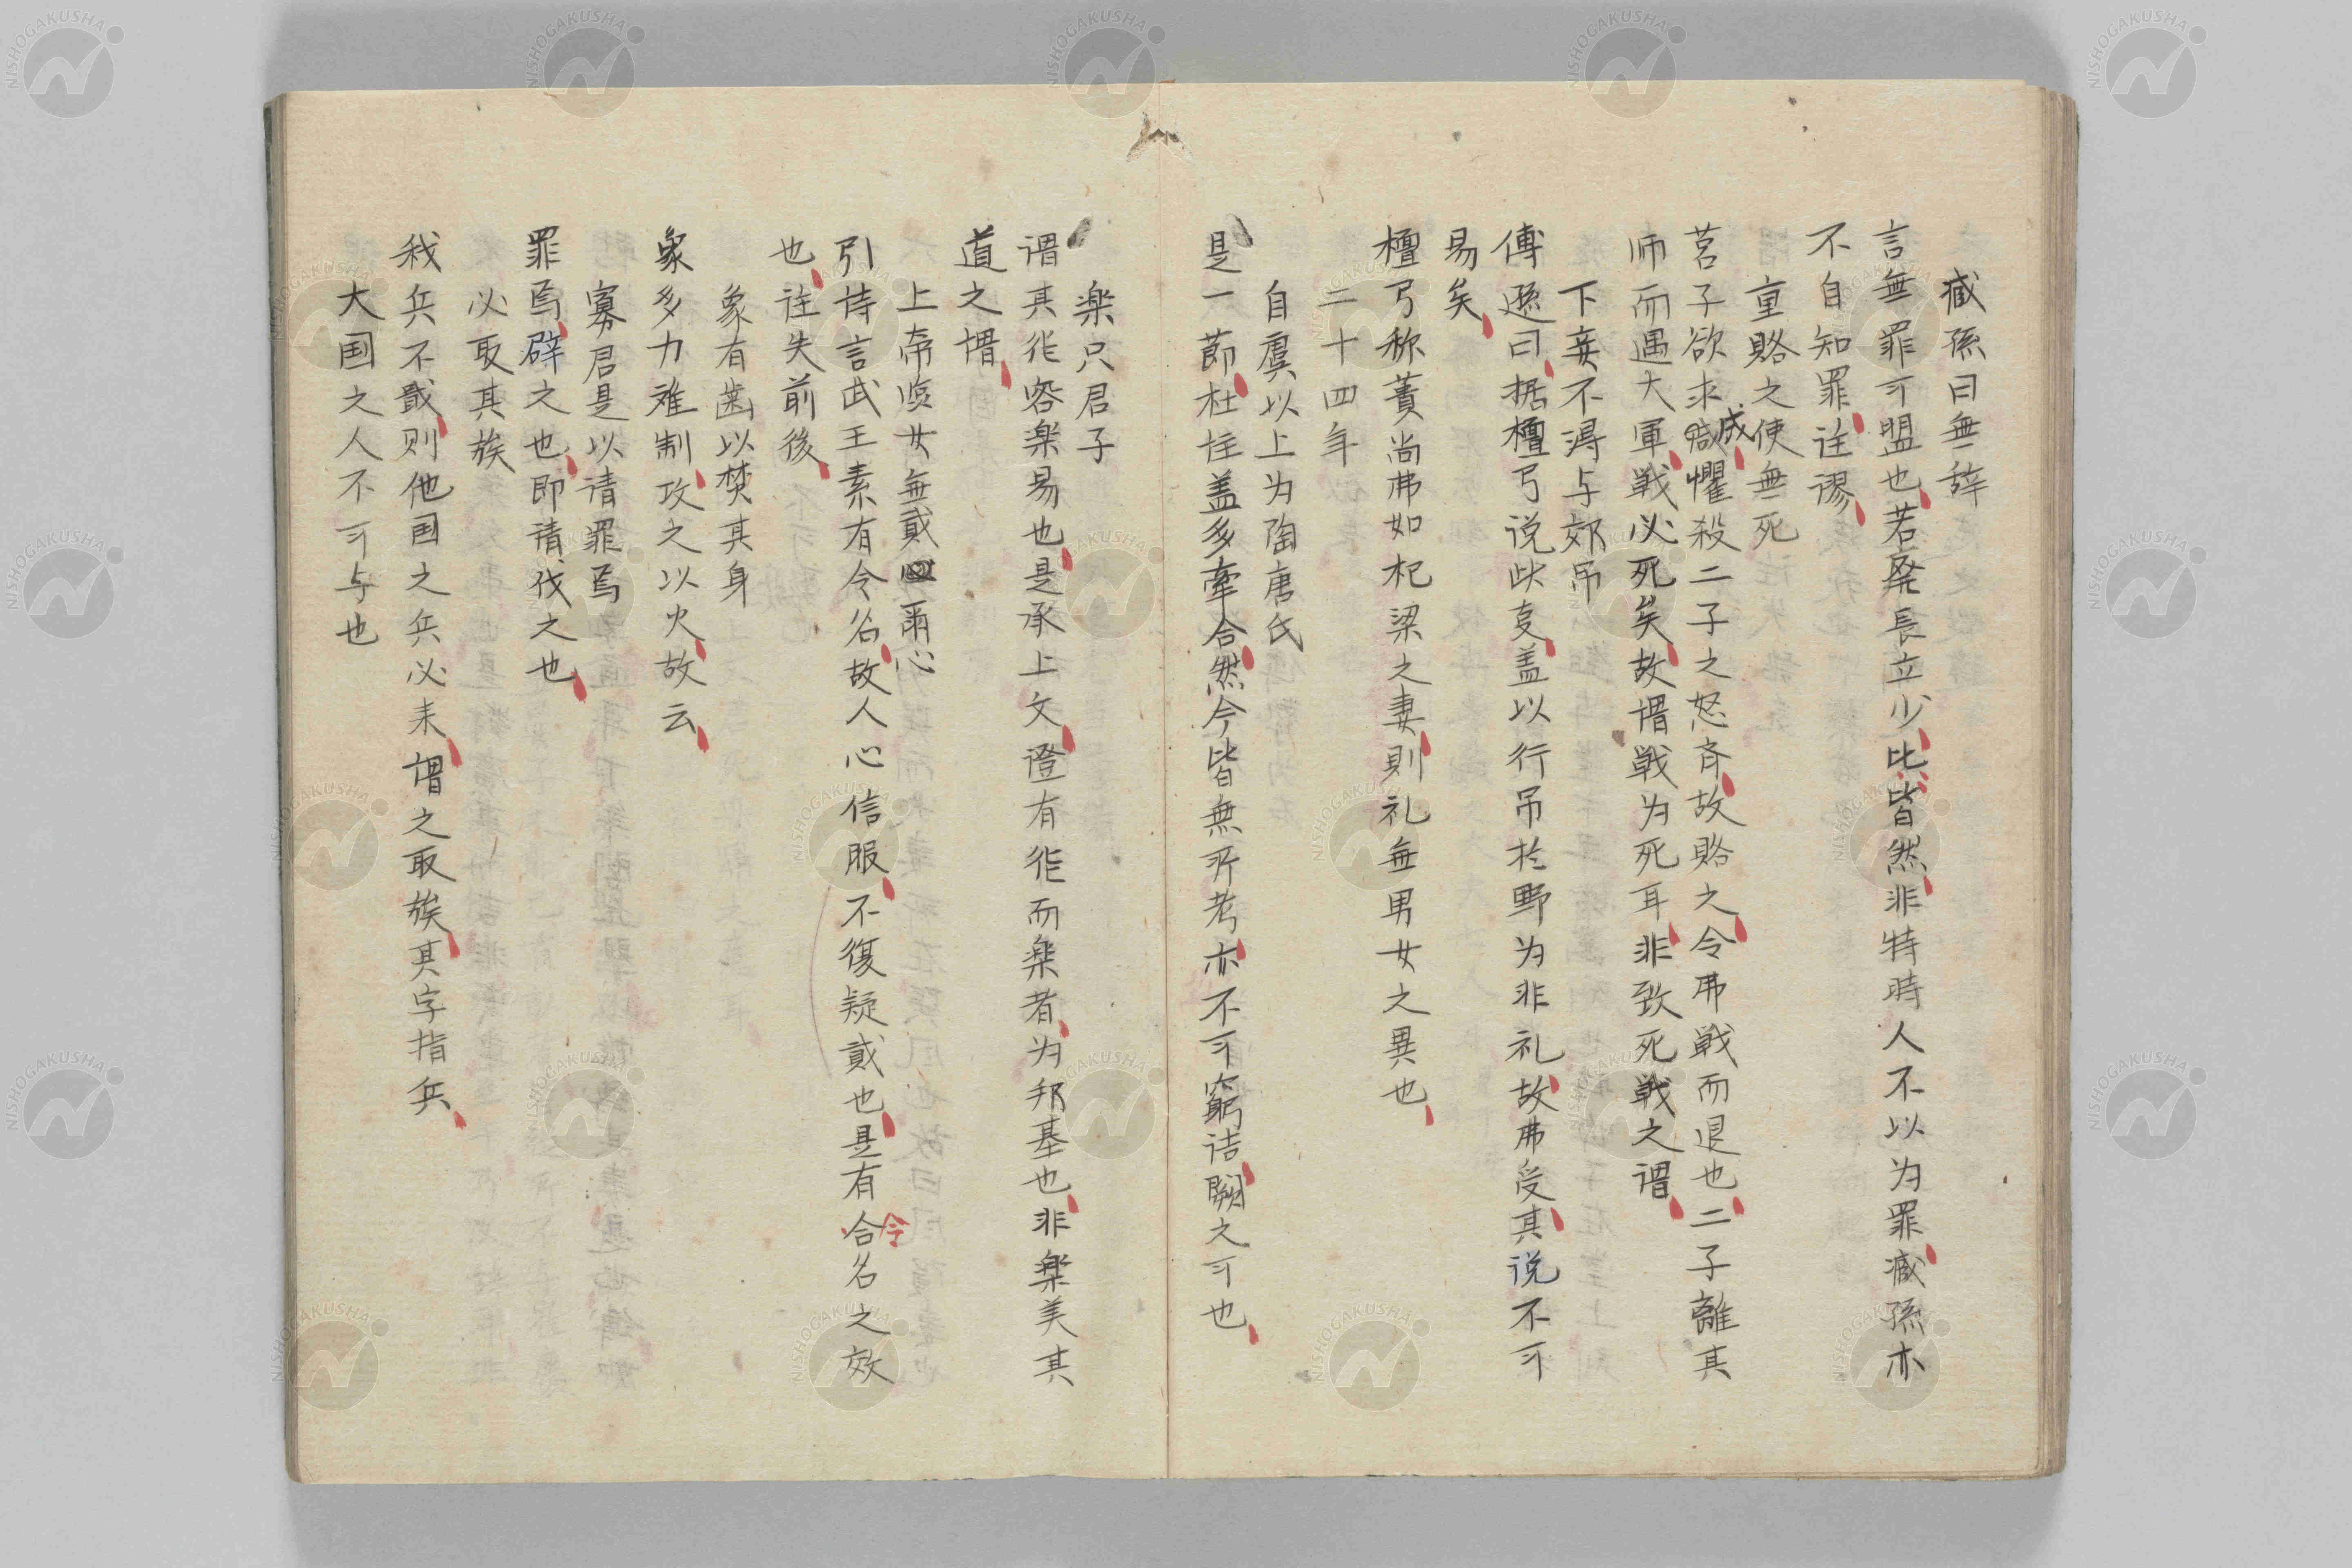 臧孫曰無辞
言無罪可盟也若廃長立少比皆然非特時人不以为罪臧孫亦
不自知罪註謬
重賂之使無死
莒子欲求成懼殺二子之怒斉故賂之令弗戦而退也二子離其
师而遇大軍戦必死矣故謂戦为死耳非致死戦之謂
下妾不得与郊吊
傅遜曰据檀弓说此支盖以行吊於野为非礼故弗受其说不可
易矣
檀弓称蕢尚弗如杞梁之妻則礼無男女之異也
二十四年
自虞以上为陶唐氏
是一節杜註盖多牽合然今皆無所考亦不可窮诘闕之可也
楽只君子
谓其作容楽易也是承上文證有作而楽者为邦基也非楽美其
道之谓
上帝临女無貳爾心
引诗言武王素有令名故人心信服不復疑貳也是有令名之效
也註失前後
象有歯以焚其身
象多力难制攻之以火故云
寡君是以请罪焉
罪焉辟之也即请伐之也
必取其族
我兵不戢则他国之兵必来谓之取族其字指兵
大国之人不可与也
NISHOGAKUSHA